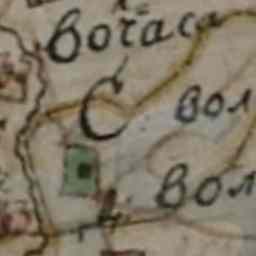 вочаса
С
вол
вол